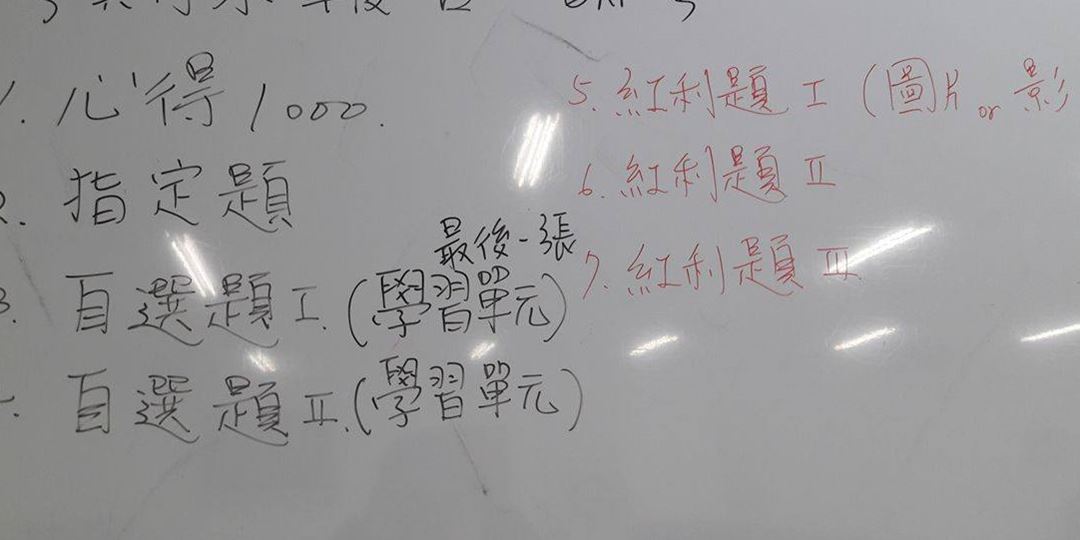 1. 心得 1000.
2. 指定題
最後一張
3. 自選題 I. (學習單元)
自選題 II. (學習單元)
5. 紅利題 I (圖片 or 影
6. 紅利題 II
7. 紅利題 III